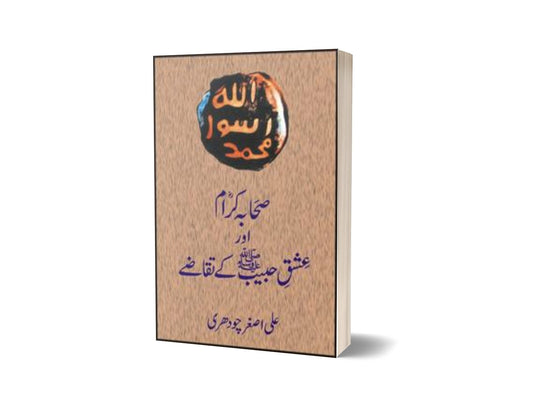 الله
رسول
محمد
صحابہ کرامؓ
اور
عشقِ حبیب ﷺ کے تقاضے
علی اصغر چودھری